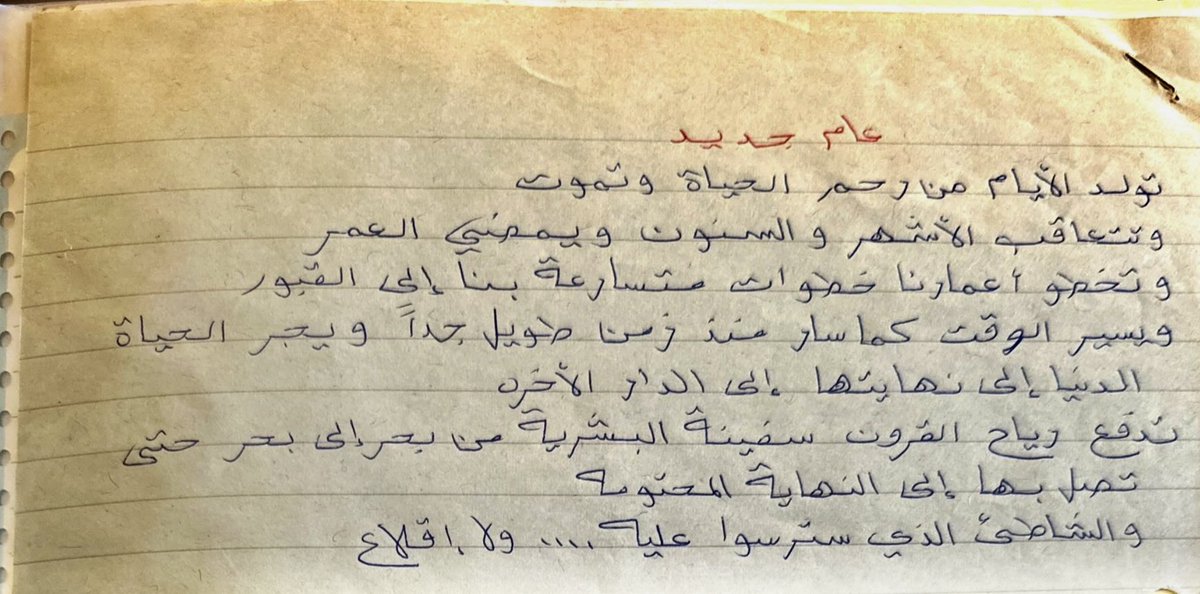 عام جديد
تولد الأيام من رحم الحياة وتموت
وتتعاقب الأشهر والسنون ويمضي العمر
وتخطو أعمارنا خطوات متسارعة بنا إلى القبور
ويسير الوقت كما سار منذ زمن طويل جداً ويجر الحياة
الدنيا إلى نهايتها إلى الدار الأخره
تدفع رياح القرون سفينة البشرية من بحر إلى بحر حتى
تصل بها إلى النهاية المحتومه
والشاطئ الذي سترسوا عليه .... ولا إقلاع